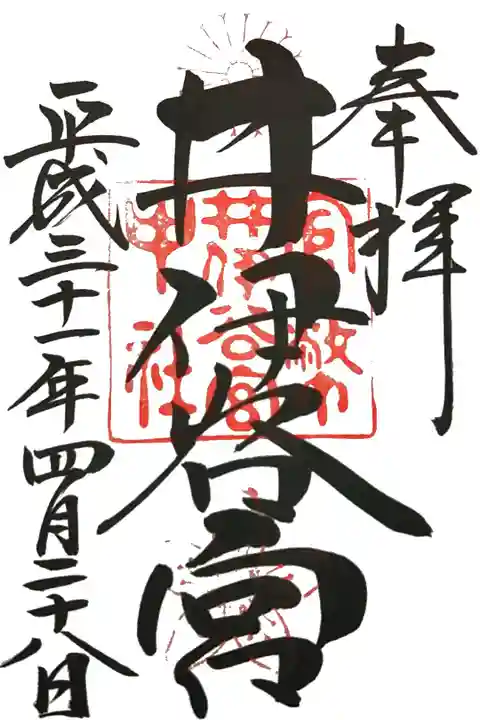 奉拝
井伊谷宮
平成三十一年四月二十八日
官幣
井伊谷宮
中社